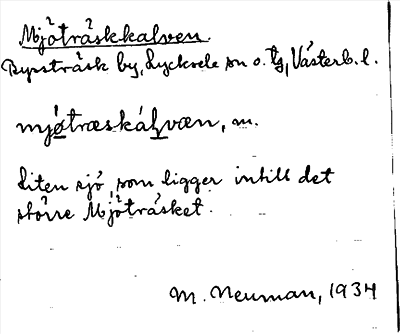 Mjöträskkalven.
Byssträsk by, Lycksele sn o. tg, Västerb. l.
mjøtræskálvæn, m.
Liten sjö, som ligger intill det
större Mjöträsket.
M. Neuman, 1934